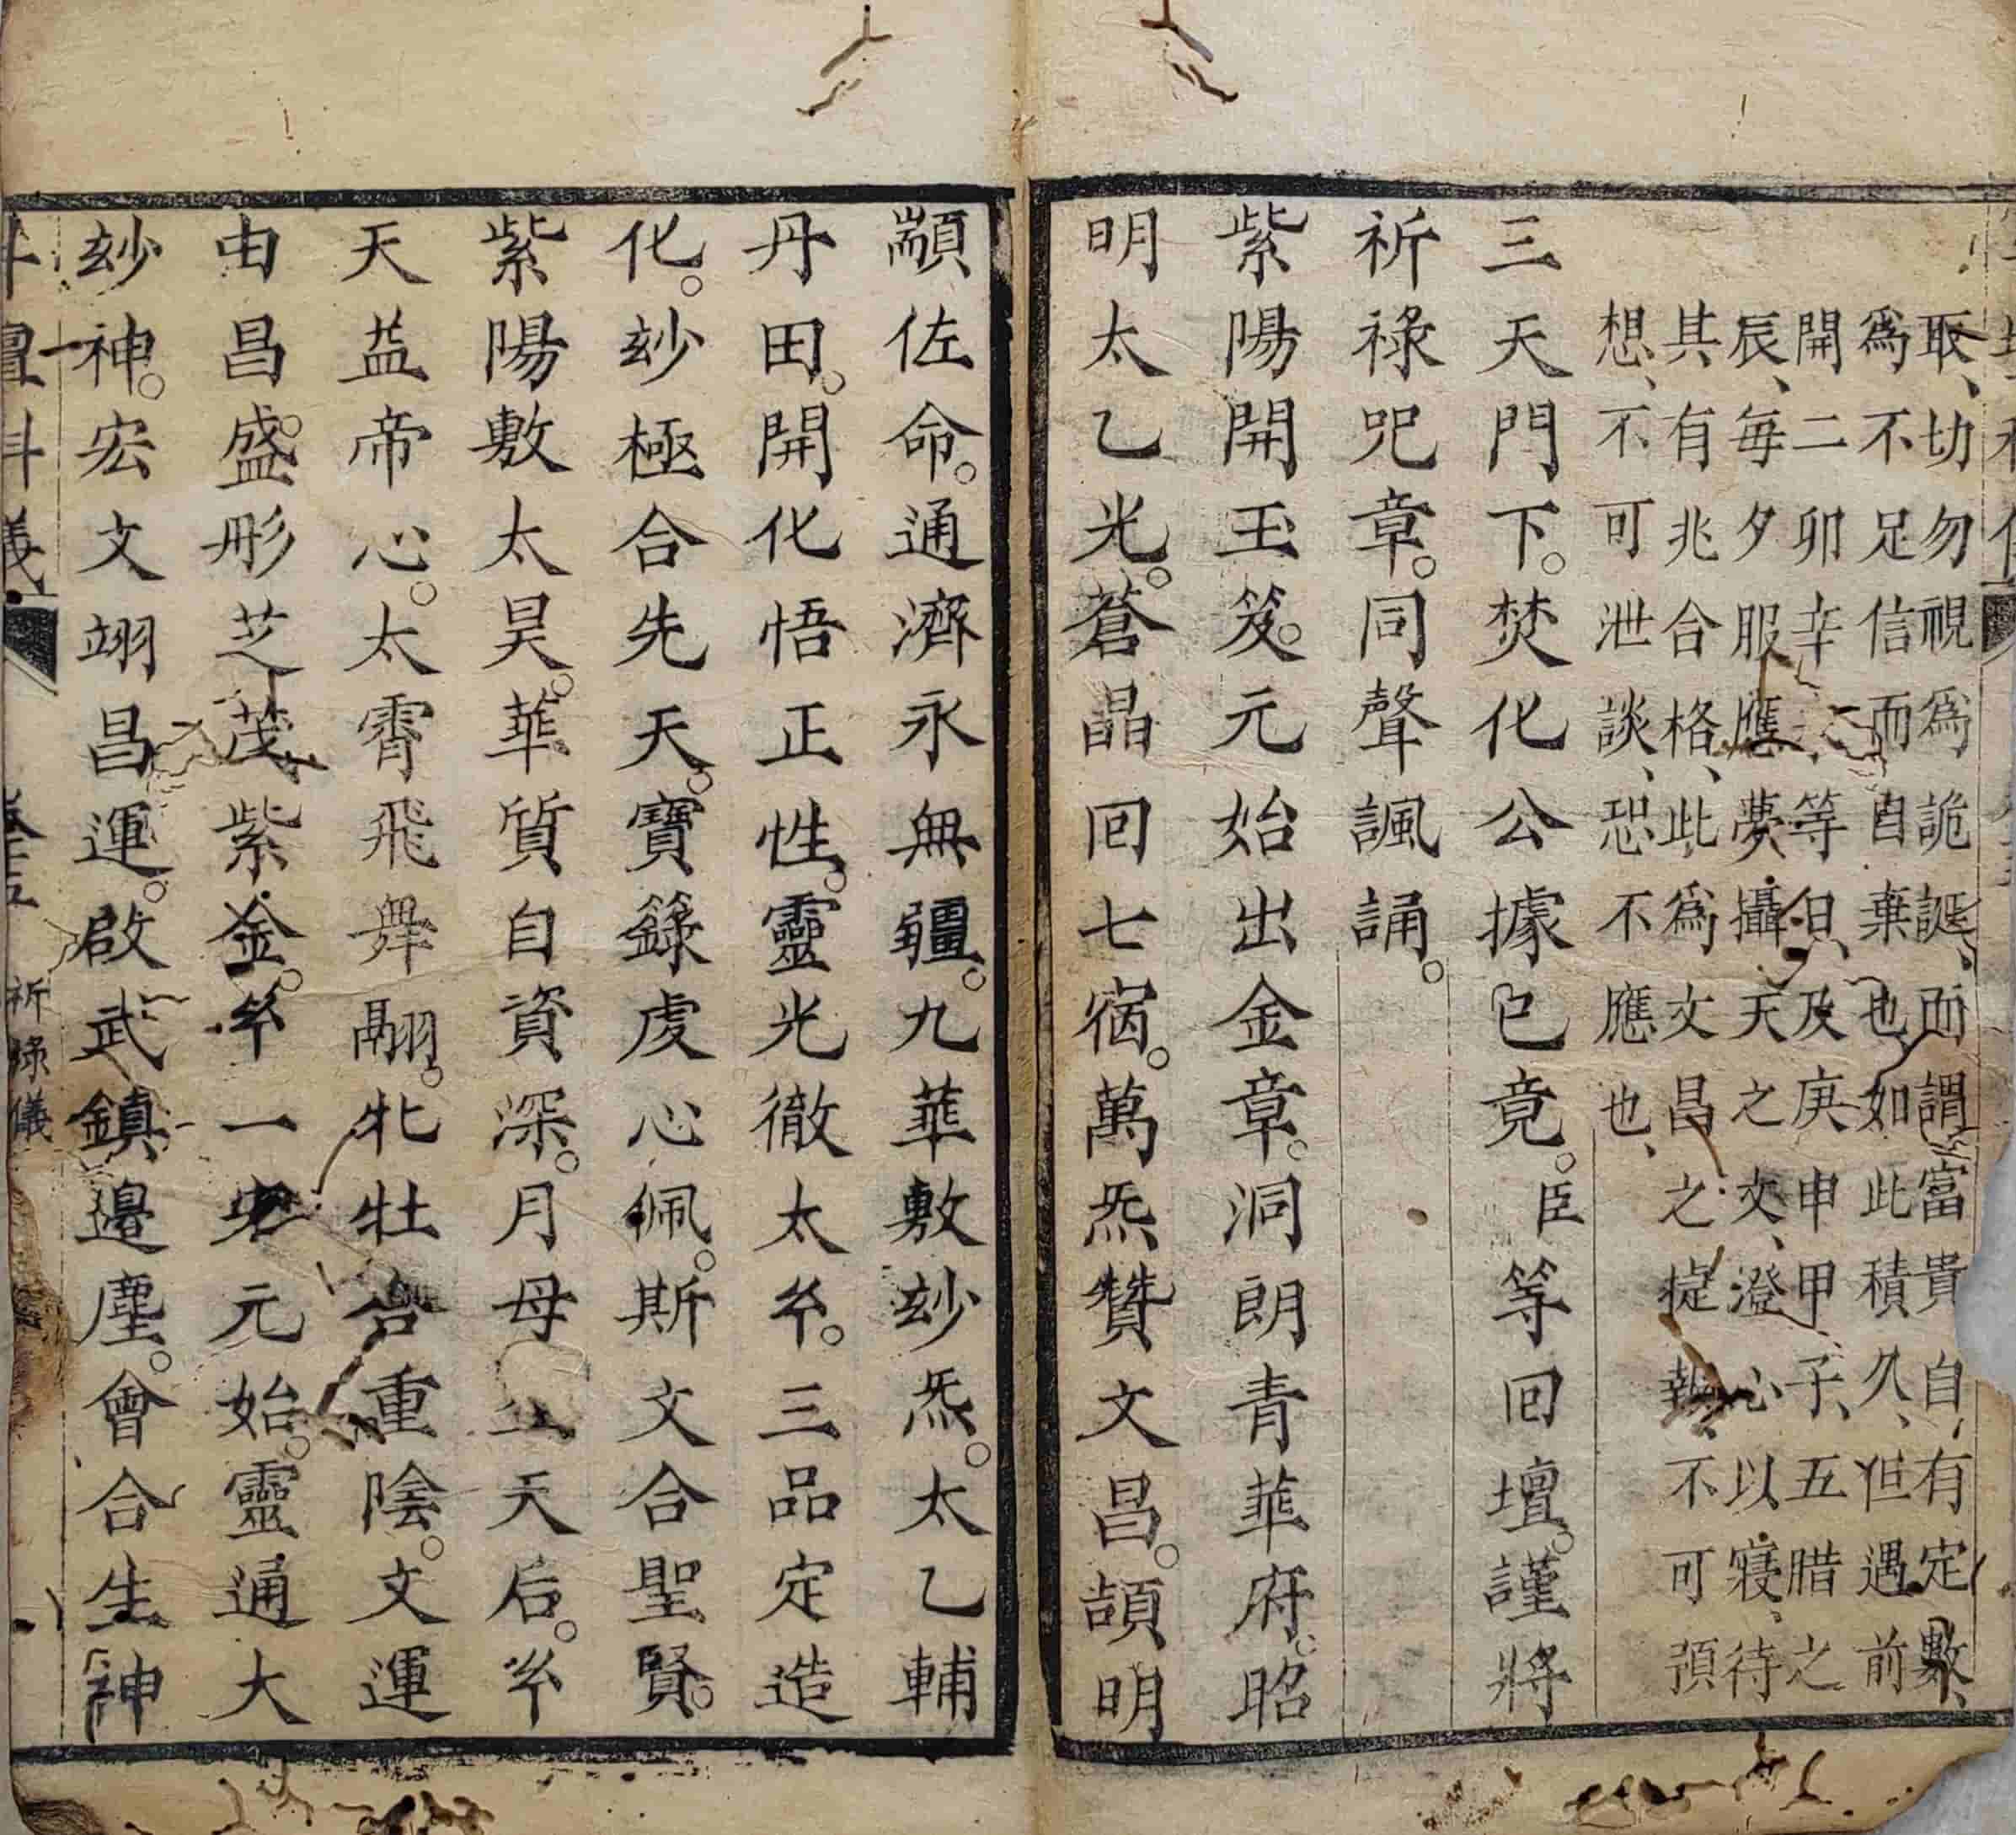 取、切勿視爲詭誕、而謂富貴自有定數、
爲不足信而自棄也、如此積久、但遇前
開二卯辛等日、及庚申甲子、五腊之
辰、每夕服應夢攝天之文、澄心以寢、待
其有兆合格、此爲文昌之㨗報、不可預
想、不可泄談、恐不應也、
三天門下。焚化公據已竟。臣等回壇。謹將
祈祿咒章。同聲諷誦。
紫陽開玉笈。元始出金章。洞朗青華府。昭
明太乙光。蒼晶回七宿。萬炁贊文昌。頡明
顓佐命。通濟永無疆。九華敷玅炁。太乙輔
丹田。開化悟正性。靈光徹太𢆯。三品定造
化。玅極合先天。寶籙虔心佩。斯文合聖賢。
紫陽敷太昊。華質自資深。月母 天后。𢆯
天益帝心。太霄飛舞翮。牝牡合重陰。文運
由昌盛。形芝茂紫金。𢆯一 元始。靈通大
玅神。宏文翊昌運。啟武鎮邊塵。會合生神
斗壇科儀 卷五 祈祿儀